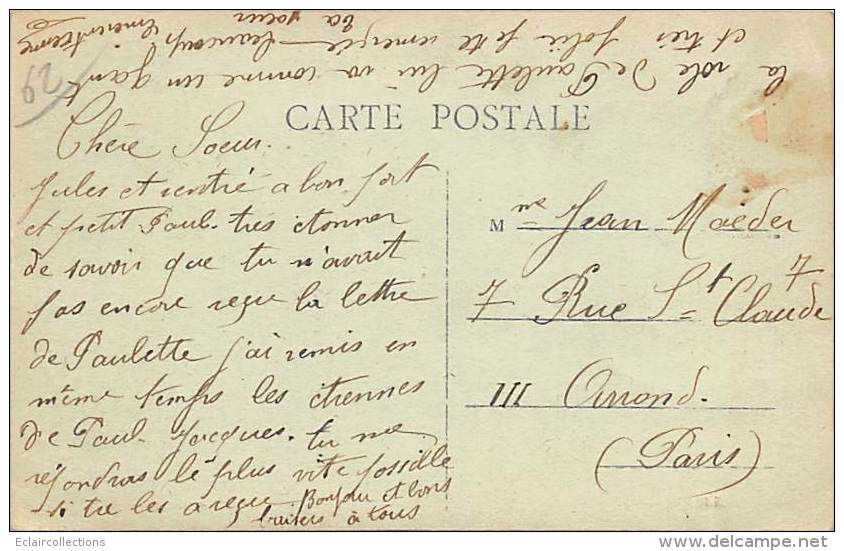 CARTE POSTALE
Chère Soeur.
Jules et rentré a bon port
et petit Paul. très etonner
de savoir que tu n'avait
pas encore reçue la lettre
de Paulette j'ai remis en
même temps les étrennes
de Paul. Jacques. tu me
répondras le plus vite possible
si tu les a reçue Bonjour et bons
baisers à tous
la robe de Paulette lui va comme un gant
et très jolie je te remercie beaucoup
ta soeur
Mme Jean Maeder
7 Rue St Claude 7
III Arrond.
(Paris)
29
Eclaircollections
www.delcampe.net